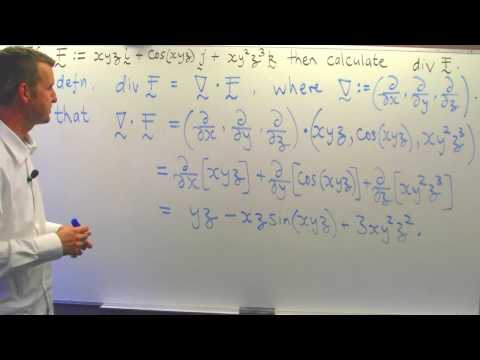 F := xyz i + cos(xyz) j + xy²z³ k then calculate div F.
defn, div F = ∇ · F, where ∇ := (∂/∂x, ∂/∂y, ∂/∂z).
that ∇ · F = (∂/∂x, ∂/∂y, ∂/∂z) · (xyz, cos(xyz), xy²z³)
= ∂/∂x [xyz] + ∂/∂y [cos(xyz)] + ∂/∂z [xy²z³]
= yz − xz sin(xyz) + 3xy²z².